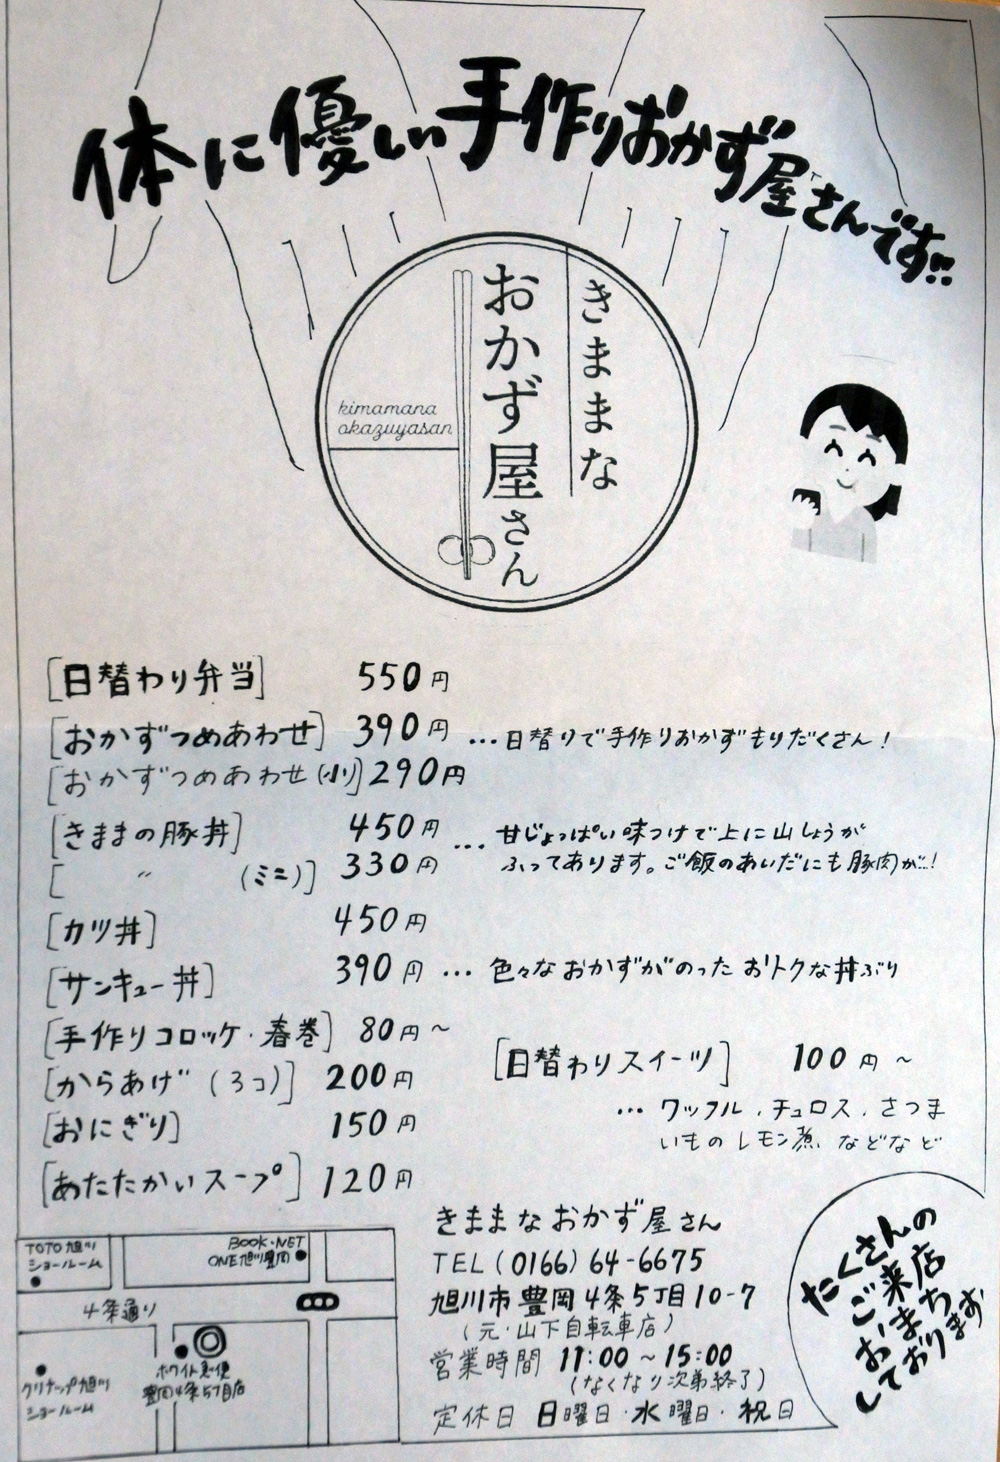 体に優しい手作りおかず屋さんです!!
きままな
おかず屋さん
kimamana
okazuyasan
[日替わり弁当] 550円
[おかずつめあわせ] 390円 …日替りで手作りおかずもりだくさん!
[おかずつめあわせ(小)] 290円
[きままの豚丼] 450円 …甘じょっぱい味つけで上に山しょうが
[ 〃 (ミニ)] 330円 ふってあります。ご飯のあいだにも豚肉が..!
[カツ丼] 450円
[サンキュー丼] 390円 …色々なおかずがのったおトクな丼ぶり
[手作りコロッケ・春巻] 80円~
[からあげ (3コ)] 200円
[おにぎり] 150円
[あたたかいスープ] 120円
[日替わりスイーツ] 100円~
…ワッフル、チュロス、さつま
いものレモン煮、などなど
きままなおかず屋さん
TEL (0166) 64-6675
旭川市豊岡4条5丁目10-7
(元・山下自転車店)
営業時間 11:00~15:00
(なくなり次第終了)
定休日 日曜日・水曜日・祝日
たくさんの
ご来店
おまち
しております
TOTO旭川
ショールーム
BOOK・NET
ONE旭川豊岡
4条通り
クリナップ旭川
ショールーム
ホワイト急便
豊岡4条5丁目店